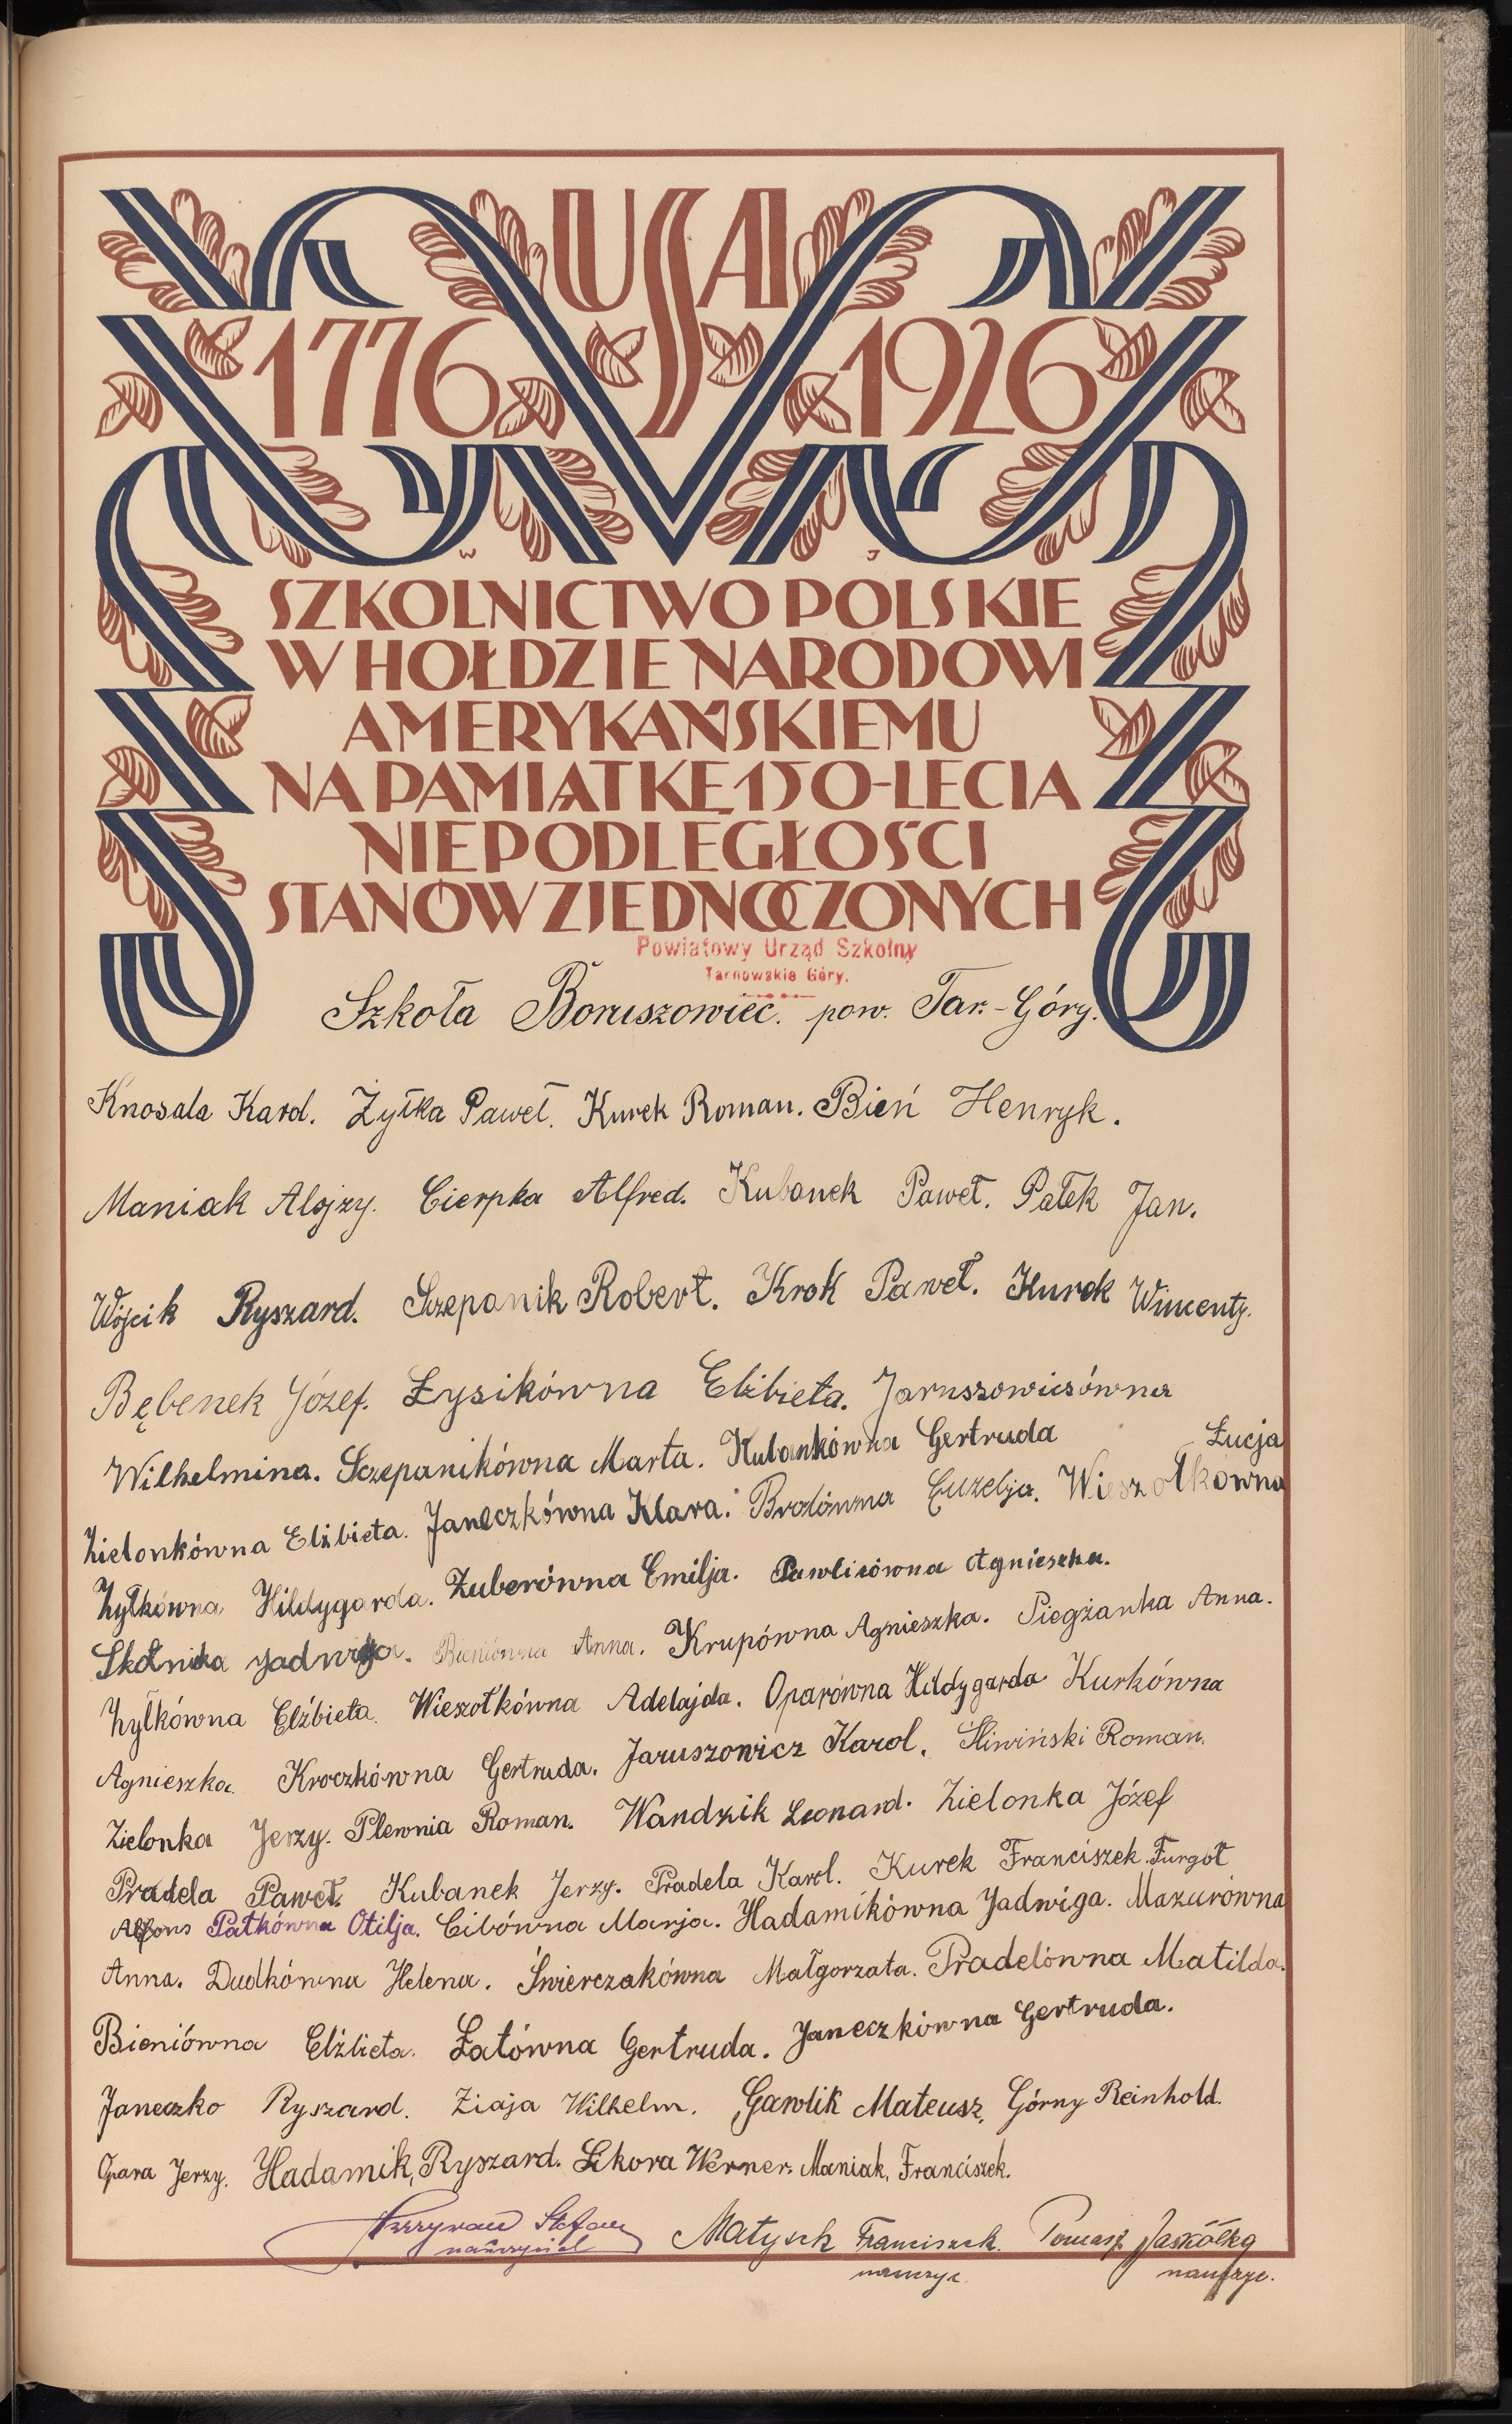 USA
1776 1926
W J
SZKOLNICTWO POLSKIE
W HOŁDZIE NARODOWI
AMERYKAŃSKIEMU
NA PAMIĄTKĘ 150-LECIA
NIEPODLEGŁOŚCI
STANÓW ZJEDNOCZONYCH
Powiatowy Urząd Szkolny
Tarnowskie Góry.
Szkoła Boruszowiec. pow. Tar.-Góry.
Knosala Karol. Żyłka Paweł. Kurek Roman. Bień Henryk.
Maniak Alojzy. Cierpka Alfred. Kubanek Paweł. Pałek Jan.
Wójcik Ryszard. Szepanik Robert. Krok Paweł. Kurek Wincenty.
Bębenek Józef. Łysikówna Elżbieta. Jaruszowicsówna
Wilhelmina. Sczepanikówna Marta. Kubankówna Gertruda Łucja
Zielonkówna Elżbieta. Janeczkówna Klara. Brolówna Euzebja. Wieszołkówna
Żyłkówna Hildygarda. Zuberówna Emilja. Pawlikówna Agnieszka.
Skotnika Jadwiga. Bieniówna Anna. Krupówna Agnieszka. Piegżanka Anna.
Żyłkówna Elżbieta. Wieszołkówna Adelajda. Oparówna Hildygarda Kurkówna
Agnieszka. Kroczkówna Gertruda. Jaruszowicz Karol. Śliwiński Roman.
Zielonka Jerzy. Plewnia Roman. Wandzik Leonard. Zielonka Józef
Pradela Paweł. Kubanek Jerzy. Pradela Karol. Kurek Franciszek. Furgoł
Alfons Patkówna Otilja. Cibówna Marja. Hadamikówna Jadwiga. Mazurówna
Anna. Dudkówna Helena. Świerczakówna Małgorzata. Pradelówna Matilda.
Bieniówna Elżbieta. Łatówna Gertruda. Janeczkówna Gertruda.
Janeczko Ryszard. Ziaja Wilhelm. Gawlik Mateusz, Górny Reinhold.
Opara Jerzy. Hadamik, Ryszard. Sikora Werner. Maniak, Franciszek.
Stefan Matysek Franciszek. Tomasz Jaskółka
nauczyciel nauczyc. nauczyc.